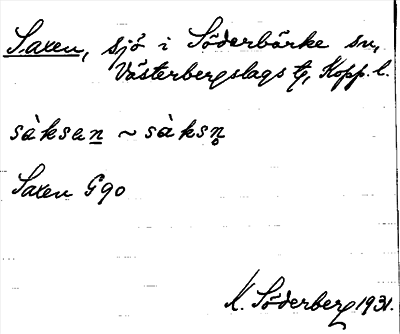 Saxen, sjö i Söderbärke sn,
Västerbergslags tg, Kopp. l.
sàksan ~ sàksn̥
Saxen G90
K. Söderberg 1931.